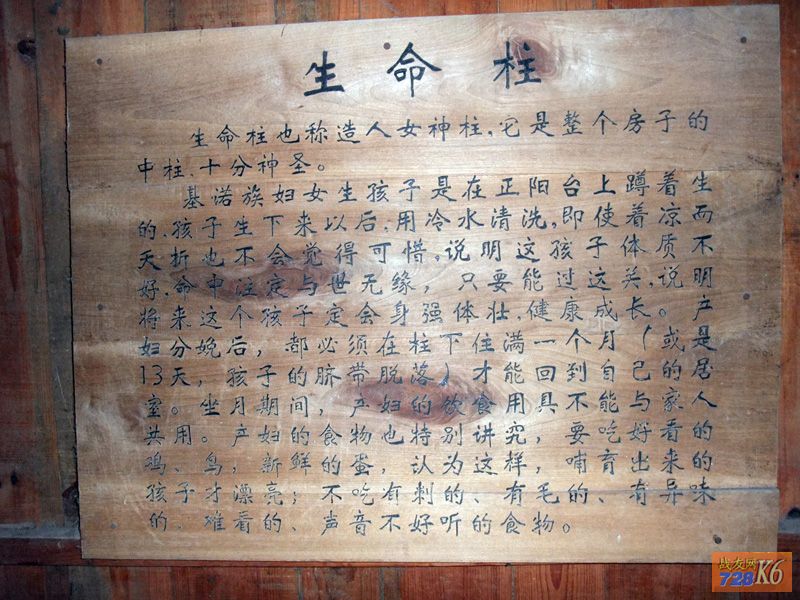 生命柱
生命柱也称造人女神柱,它是整个房子的
中柱、十分神圣。
基诺族妇女生孩子是在正阳台上蹲着生
的,孩子生下来以后,用冷水清洗,即使着凉而
夭折也不会觉得可惜,说明这孩子体质不
好,命中注定与世无缘,只要能过这关,说明
将来这个孩子定会身强体壮,健康成长。产
妇分娩后,都必须在柱下住满一个月(或是
13天,孩子的脐带脱落)才能回到自己的居
室。坐月期间,产妇的饮食用具不能与家人
共用。产妇的食物也特别讲究,要吃好看的
鸡、鸟,新鲜的蛋,认为这样,哺育出来的
孩子才漂亮;不吃有刺的、有毛的、有异味
的、难看的、声音不好听的食物。
战友网
728K6